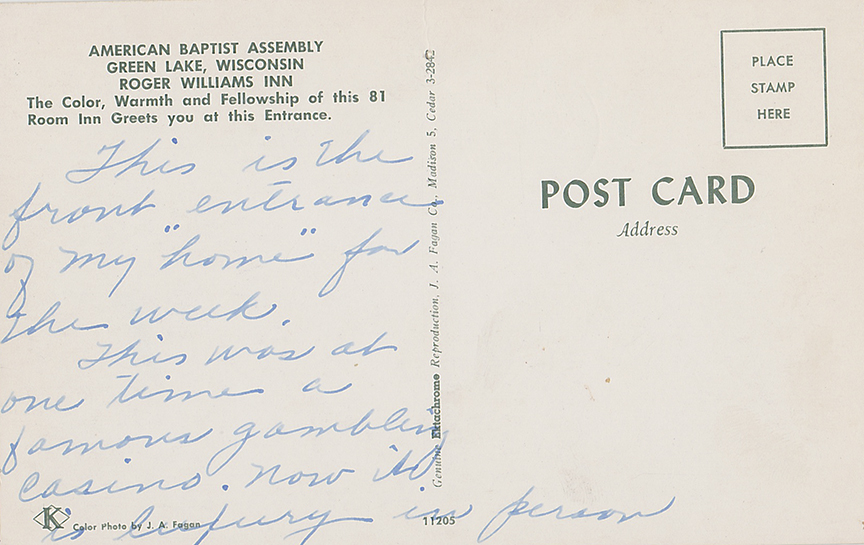 AMERICAN BAPTIST ASSEMBLY
GREEN LAKE, WISCONSIN
ROGER WILLIAMS INN
The Color, Warmth and Fellowship of this 81
Room Inn Greets you at this Entrance.
This is the
front entrance
of my "home" for
the week.
This was at
one time a
famous gambling
casino. Now it
is luxury in person
Color Photo by J. A. Fagan
K
11205
Genuine Ektachrome Reproduction, J. A. Fagan Co., Madison 5, Cedar 3-2842
PLACE
STAMP
HERE
POST CARD
Address